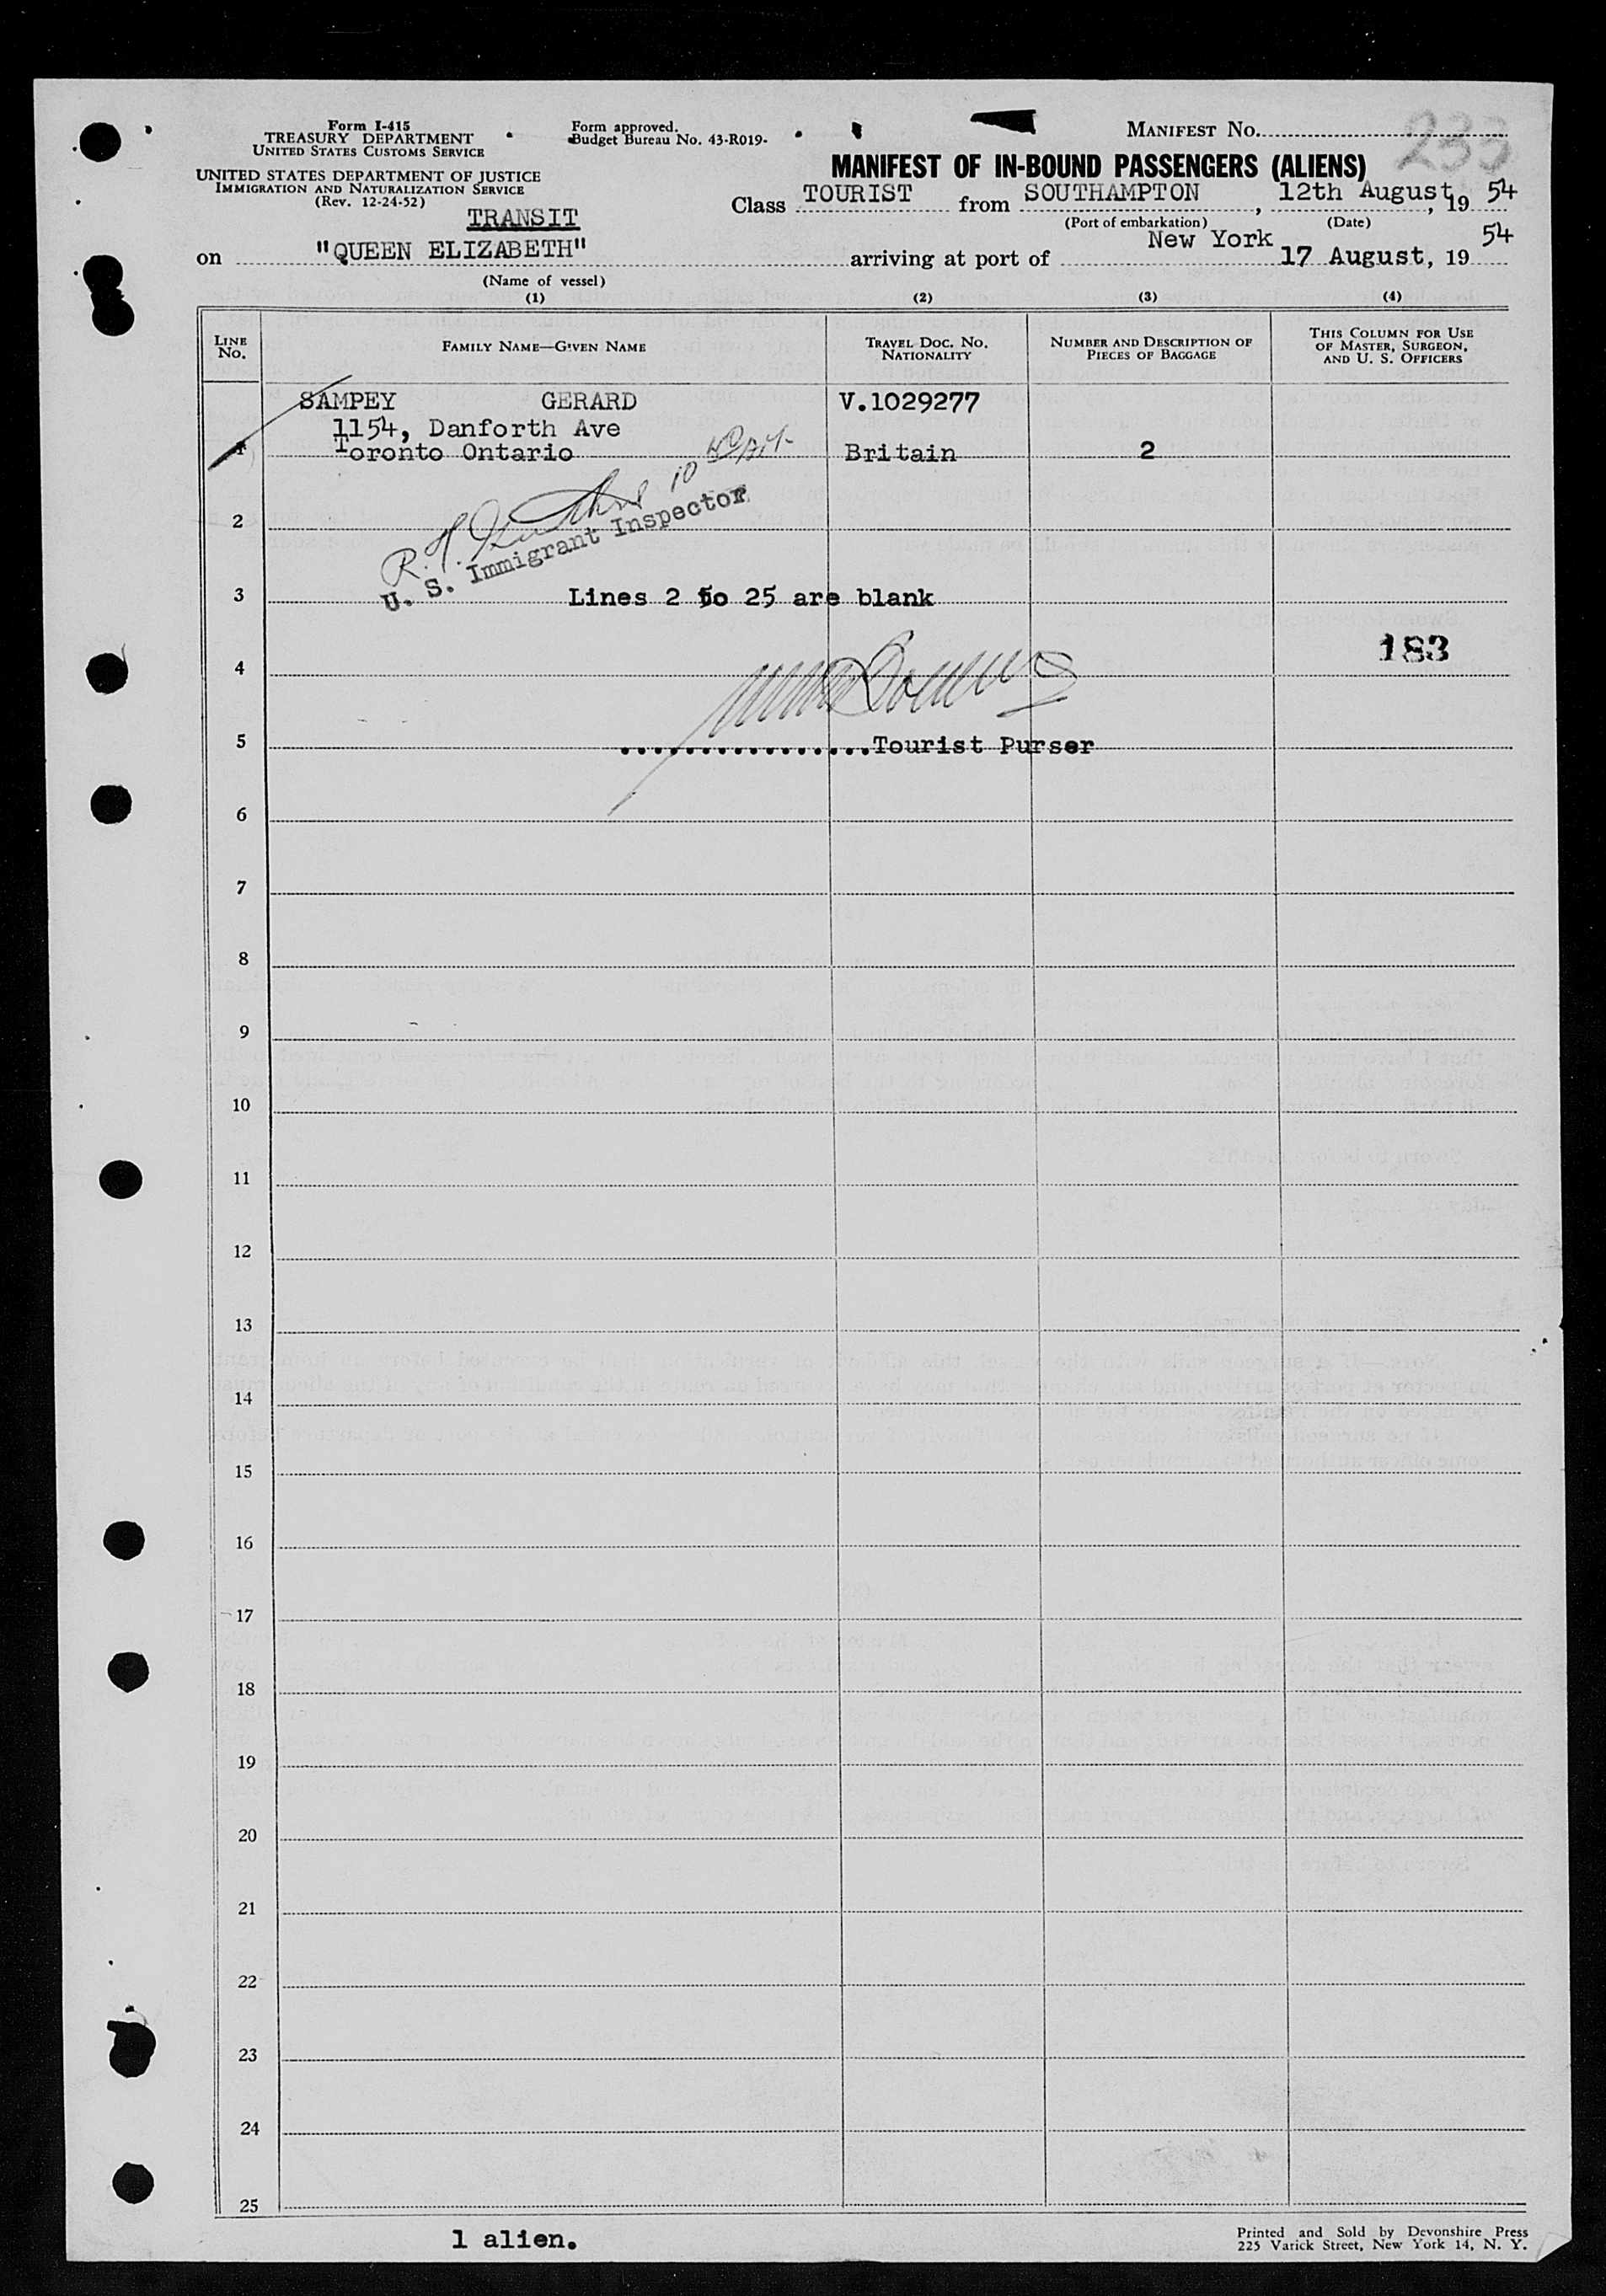 Form I-415
TREASURY DEPARTMENT
UNITED STATES CUSTOMS SERVICE
UNITED STATES DEPARTMENT OF JUSTICE
IMMIGRATION AND NATURALIZATION SERVICE
(Rev. 12-24-52)
Form approved.
Budget Bureau No. 43-R019-
MANIFEST NO. 233
MANIFEST OF IN-BOUND PASSENGERS (ALIENS)
TRANSIT
Class TOURIST from SOUTHAMPTON, 12th August, 19 54
(Port of embarkation) (Date)
on "QUEEN ELIZABETH" arriving at port of New York 17 August, 19 54
(Name of vessel)
(1) (2) (3) (4)
LINE NO. FAMILY NAME—GIVEN NAME TRAVEL DOC. NO. NATIONALITY NUMBER AND DESCRIPTION OF PIECES OF BAGGAGE THIS COLUMN FOR USE OF MASTER, SURGEON, AND U. S. OFFICERS
SAMPEY GERARD V.1029277
1154, Danforth Ave
1 Toronto Ontario Britain 2
2
R. H.
U. S. Immigrant Inspector
3 Lines 2 to 25 are blank
183
4
5 ................Tourist Purser
6
7
8
9
10
11
12
13
14
15
16
17
18
19
20
21
22
23
24
25
1 alien.
Printed and Sold by Devonshire Press
225 Varick Street, New York 14, N. Y.